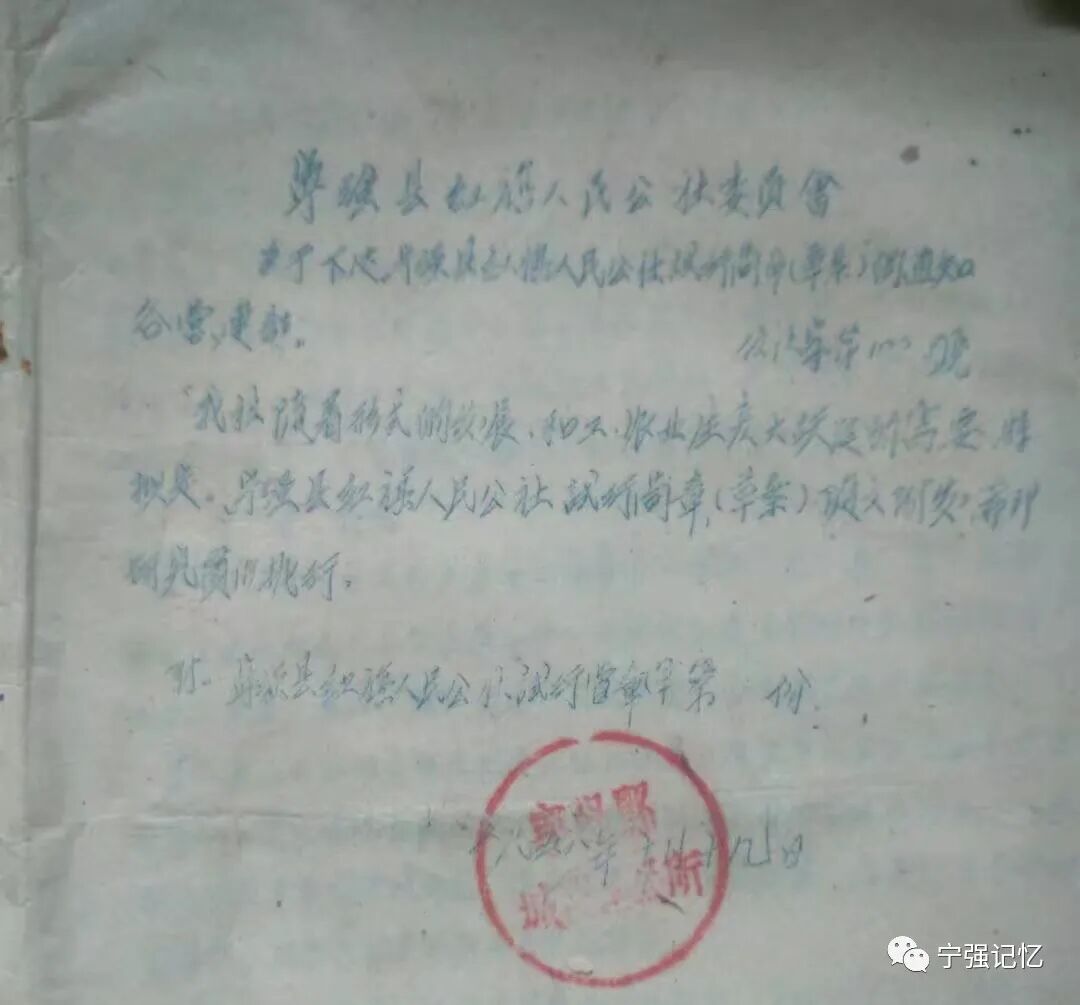 宁强县红旗人民公社委员會
关于下达宁强县红旗人民公社试行简章(草案)的通知
各营、连部。
公社字第 号
我社随着形式的发展、和工、农业生产大跃进的需要,
拟定,宁强县红旗人民公社試行简章,(草案)随文附发,希即
研究贯彻执行。
附、宁强县红旗人民公社試行简章草案 份。
一九五八年 月 日
宁强记忆